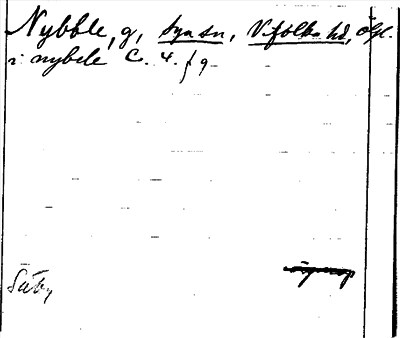 Nybble, g, Sya sn, V. folke hd, Ögl.
i nybele C. 4. f 9
Säby